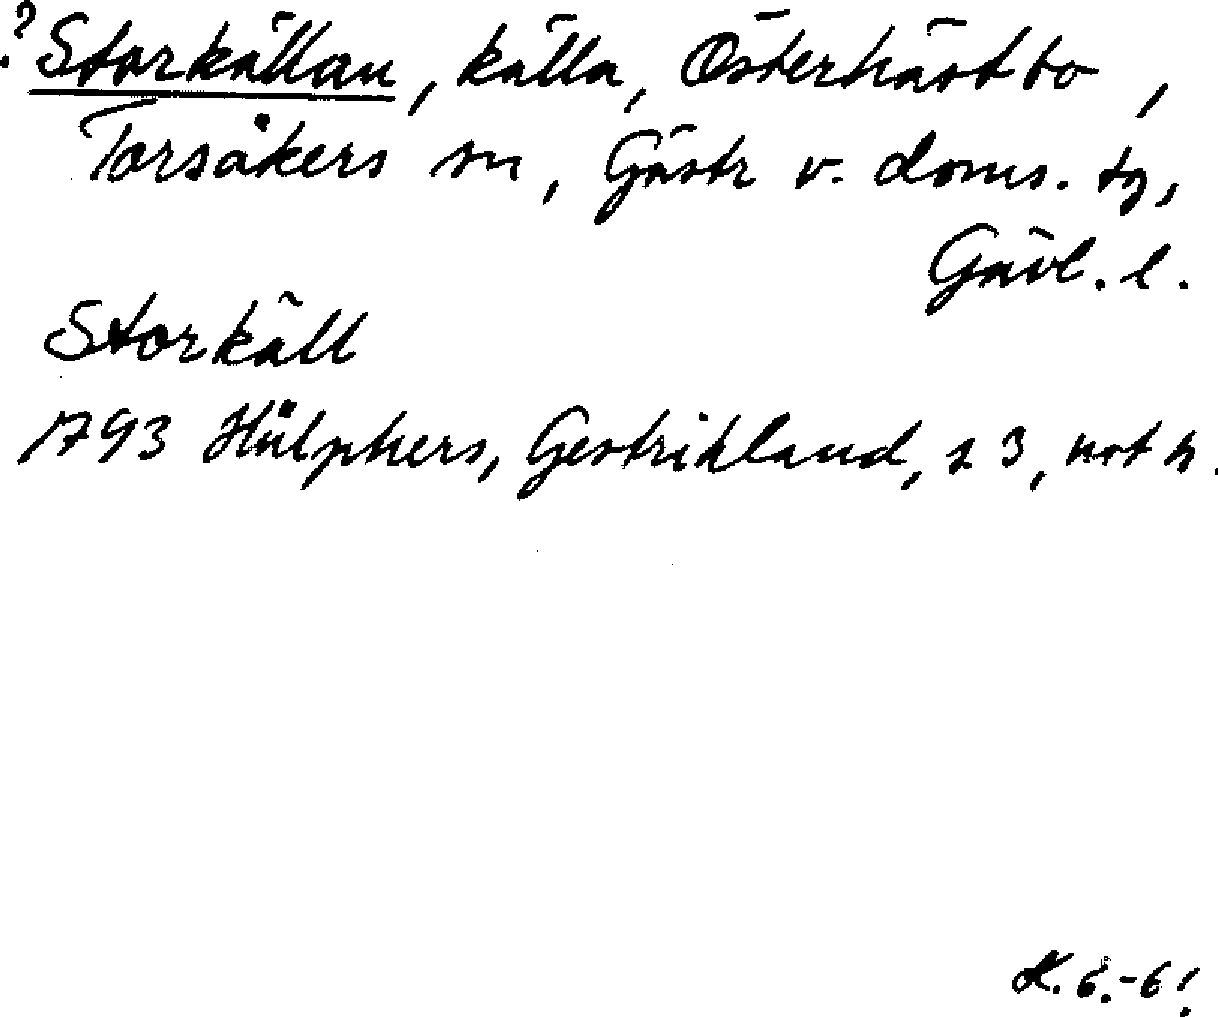 ? Storkällan, källa, Österhästbo,
Torsåkers sn, Gästr v. doms. tg,
Gävl. l.
Storkäll
1793 Hülphers, Gestrikland, s 3, not h.